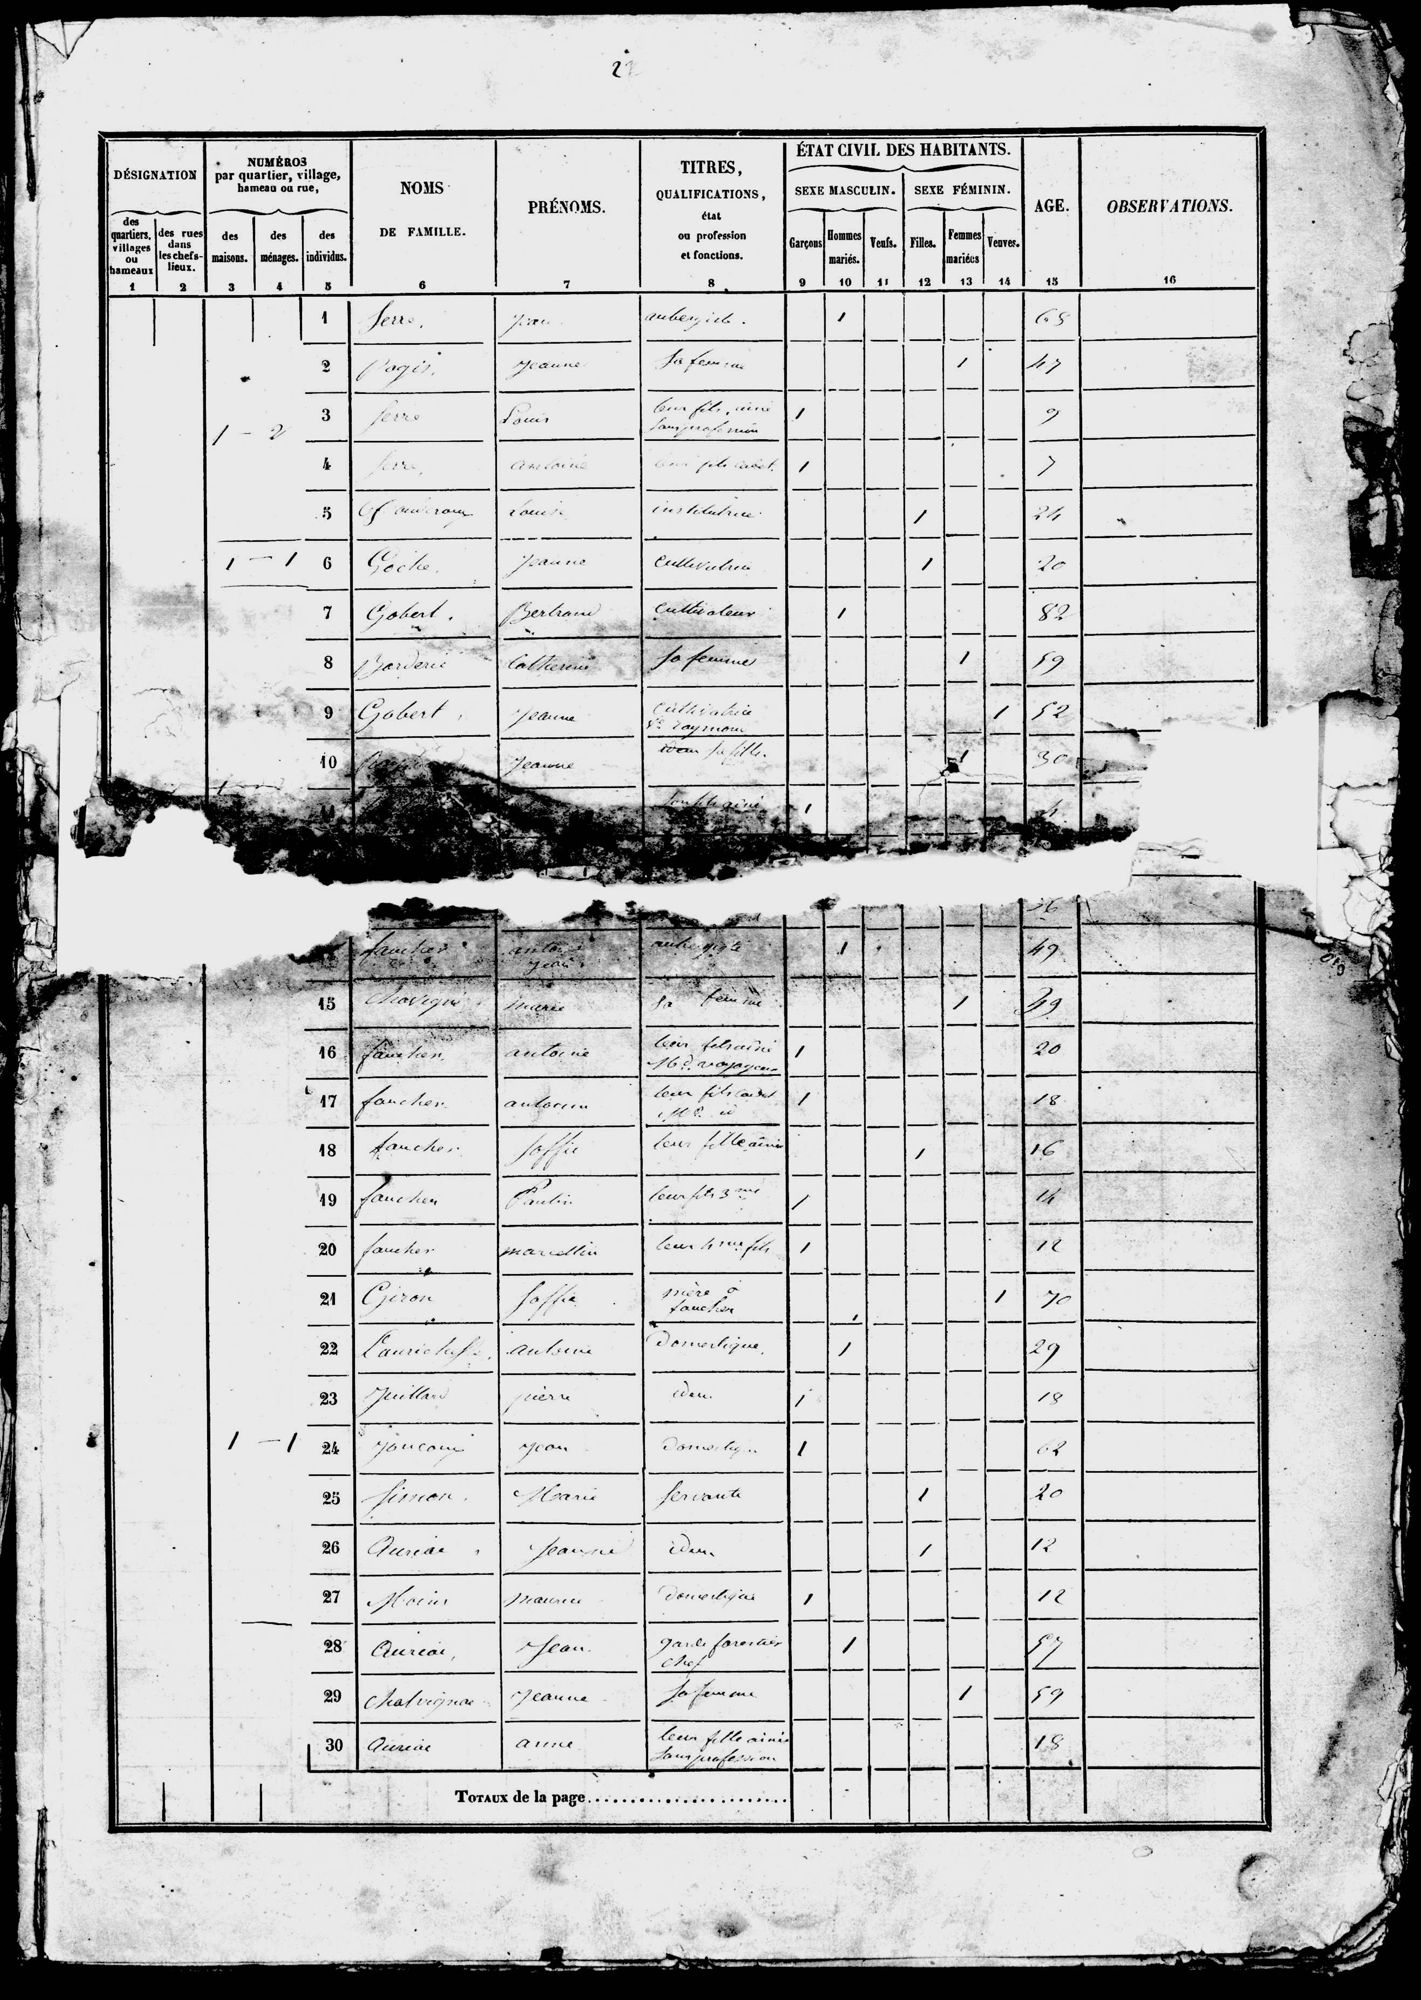 22
DÉSIGNATION
NUMÉROS
par quartier, village,
hameau ou rue,
NOMS
DE FAMILLE.
PRÉNOMS.
TITRES,
QUALIFICATIONS,
état
ou profession
et fonctions.
ÉTAT CIVIL DES HABITANTS.
SEXE MASCULIN. SEXE FÉMININ.
AGE.
OBSERVATIONS.
des quartiers, villages ou hameaux
des rues dans les chefs-lieux.
des maisons.
des ménages.
des individus.
Garçons
Hommes mariés.
Veufs.
Filles.
Femmes mariées
Veuves.
1 2 3 4 5 6 7 8 9 10 11 12 13 14 15 16
1 Serre, Jean aubergiste. 1 65
2 Pagis, Jeanne sa femme 1 47
3 Serre Louis leur fils ainé sans profession 1 9
1 - 2
4 Serre, antoine leur fils cadet. 1 7
5 Louise institutrice 1 24
1 - 1 6 Jeanne cultivatrice 1 20
7 Gobert. Bertrand cultivateur 1 82
8 Borderie Catherine sa femme 1 59
9 Gobert, Jeanne cultivatrice Ve raymond 1 52
10 Jeanne idem sa fille. 1 30
11 son fils ainé 1 4
36
faucher antoine Jean aubergiste 1 49
15 marie sa femme 1 49
16 faucher antoine leur fils ainé Md. voyageur 1 20
17 faucher antoine leur fils cadet Md. id 1 18
18 faucher Soffie leur fille ainée 1 16
19 faucher Paulin leur fils 3me 1 14
20 faucher marcellin leur 4me fils 1 12
21 Giron Soffie mère à faucher 1 70
22 Laurichesse, antoine Domestique. 1 29
23 Juillard pierre idem 1 18
1 - 1 24 Jean Domestique 1 62
25 Simon. Marie servante 1 20
26 Auriac Jeanne idem 1 12
27 maurice Domestique 1 12
28 Auriac, Jean garde forestier chef 1 57
29 Chalvignac Jeanne sa femme 1 59
30 Auriac anne leur fille ainée sans profession 18
TOTAUX de la page